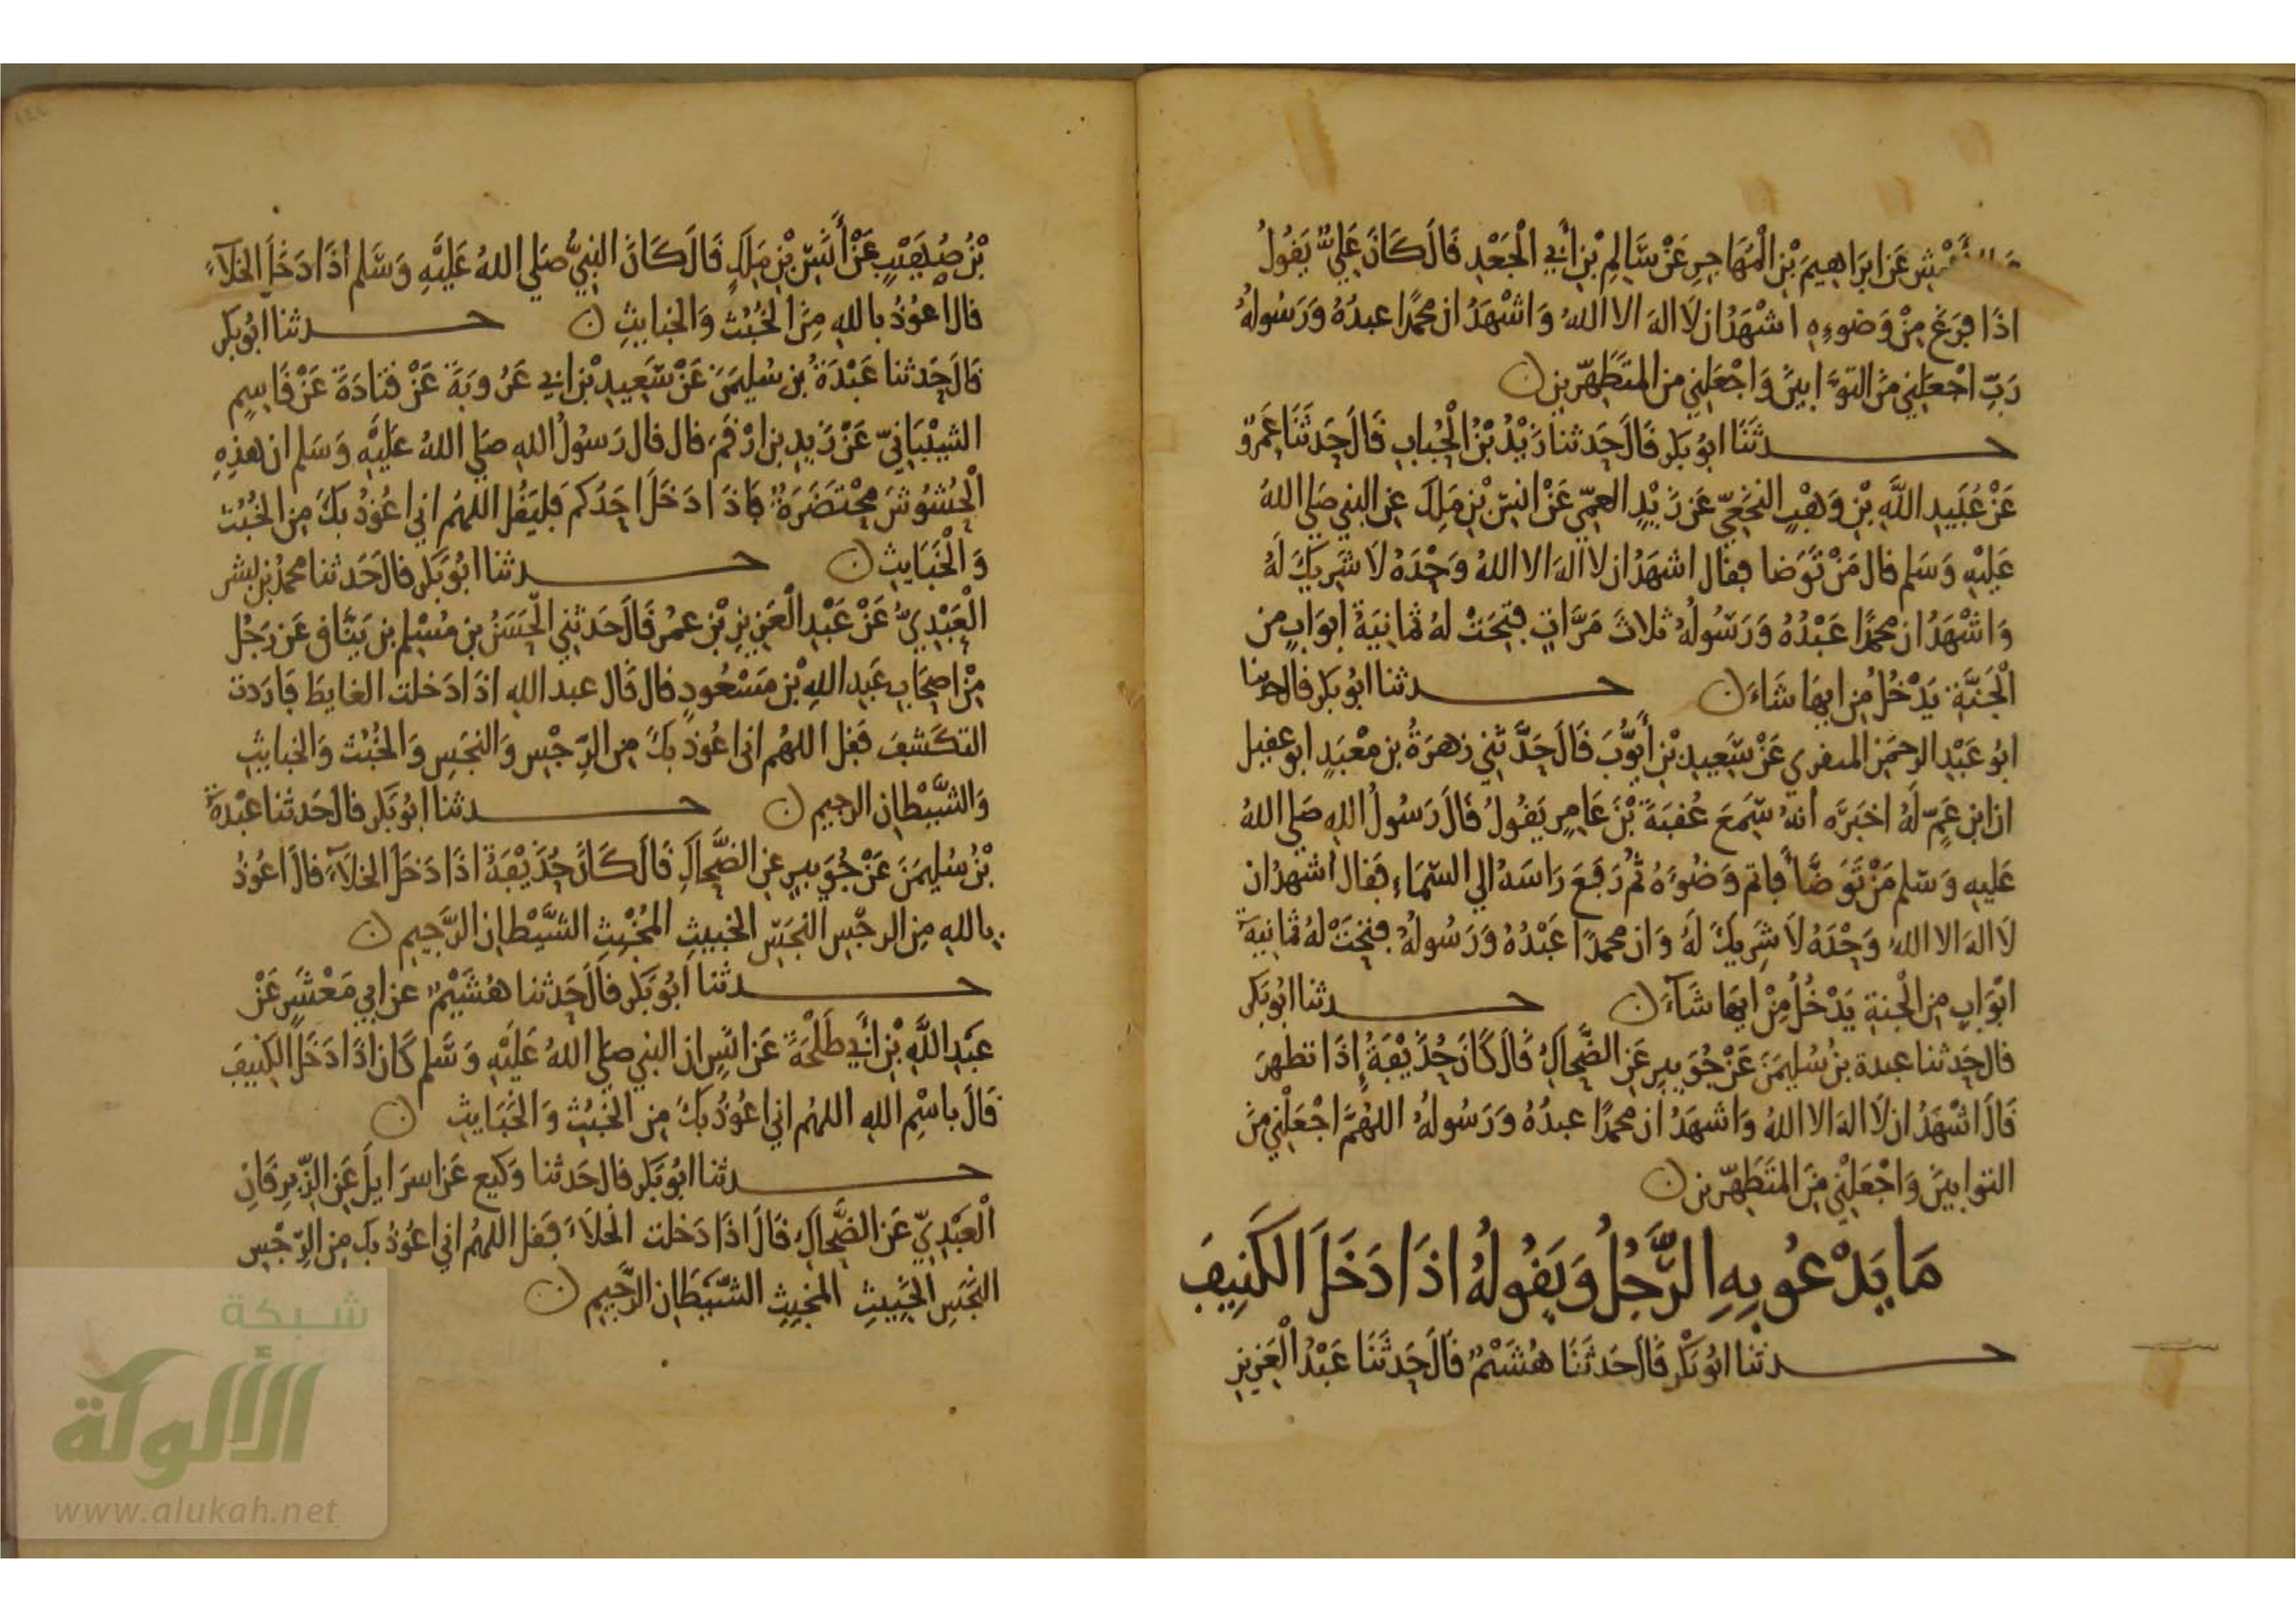 الأعمش عَن ابرَاهِيمَ بْنِ الْمُهَاجِرِ عَنْ سَالِمِ بْنِ أَبِي الْجَعْدِ قَالَ كَانَ عَلِيٌّ يَقُولُ
اذَا فَرَغَ مِنْ وَضوءِهِ اشْهَدُ ان لَا الهَ الا اللهُ وَاشْهَدُ ان محمدًا عبدُهُ وَرَسُولهُ
رَبِّ اجْعَلنِي مِنَ التوَّابينَ وَاجْعَلنِي من المتَطَهّرِينَ ن
حدثَنَا ابُو بَكر قَالَ حَدثنا زَيْدُ بْنُ الْحُبَابِ قَالَ حَدثَنَا عَمرٌو
عَنْ عُبَيدِ اللَّهِ بْنِ وَهْبٍ النخَعِيّ عَن زَيْدٍ العمِّي عَنْ انسِ بْنِ مَلِك عن النبي صَلي اللهُ
عَليْهِ وَسَلم قال مَنْ تَوَضا فقال اشهَدُ ان لا الهَ الا اللهُ وَحْدَهُ لا شَرِيكَ لَهُ
وَاشْهَدُ ان محمدًا عَبْدُهُ وَرَسُولُهُ ثلاثَ مَرَّاتٍ فتِحَتْ لهُ ثمَانِيَةُ ابوَابٍ من
الْجَنَّةِ يَدْخُلُ مِن ايهَا شَاءَ ن حدثنا ابُو بَكر قال حدثنا
ابُو عَبْدِ الرحمَنِ المقري عَنْ سَعِيدِ بْنِ أَيُّوبَ قَالَ حَدَّثَنِي زهرَةُ بن مَعْبَدٍ ابو عقيل
ان ابن عَمٍّ لَهُ اخبَرَه انهُ سَمِعَ عُقبَةَ بْنَ عَامِرٍ يَقُولُ قَالَ رَسُولُ اللهِ صَلي اللهُ
عَليهِ وَسَلم مَنْ تَوَضَّأَ فاتم وَضُوءَهُ ثُم رَفَعَ رَاسَهُ الي السّمَاءِ فقال اشهدُ ان
لَا الهَ الا اللهُ وَحْدَهُ لَا شَرِيكَ لَهُ وَان محمدًا عَبْدُهُ وَرَسُولُهُ فتِحَتْ لهُ ثمَانِيَةُ
ابْوَابٍ مِن الْجنةِ يَدْخُلُ مِنْ ايهَا شَآءَ ن حدثنا ابُو بَكر
قال حَدثنا عبدة بنُ سُليمَنَ عَنْ جُوَيبِرٍ عَنِ الضَّحاكِ قَالَ كَانَ حُذَيْفَةُ إِذَا تطهرَ
قَالَ اشْهَدُ ان لَا الهَ الا اللهُ وَاشهَدُ ان محمدًا عبدُهُ وَرَسُولُهُ اللهُمَّ اجْعَلْنِي مِنَ
التوابينَ وَاجْعَلْنِي مِنَ المتَطَهّرِين ن
مَا يَدْعُو بِهِ الرَّجُلُ وَيَقُولُهُ اذَا دَخَلَ الكَنِيفَ
حدثنا ابُو بَكْر قَالَ حَدثَنَا هُشَيْمٌ قَالَ حَدثَنَا عَبْدُ الْعَزِيزِ
بْنُ صُهَيْبٍ عَنْ أَنَسِ بْنِ مَلِكٍ قَالَ كَانَ النبِيُّ صَلي اللهُ عَليْهِ وَسَلم اذَا دَخَلَ الخلآءَ
قال اعُوْذُ باللهِ مِنَ الخُبُث وَالخبايثِ ن حدثنا ابُو بكر
قَالَ حَدثنا عَبْدَةُ بن سُليمَنَ عَنْ سَعِيدِ بْنِ ابي عَرُوبَةَ عَنْ قتَادَةَ عَنْ قَاسِمٍ
الشيْبَانِيّ عَنْ زَيدِ بن ارْقَمَ قال قال رَسولُ اللهِ صَلي اللهُ عَليْهِ وَسَلم ان هذِهِ
الْحُشُوشَ مُحْتَضَرَةٌ فاذَا دَخَلَ احَدُكم فليَقُل اللهُم اني اعُوْذُ بكَ مِن الخُبُث
وَالْخَبَايثِ ن حدثنا ابُو بَكر قال حَدثنا محمدُ بن بشر
الْعَبْدِيُّ عَنْ عَبْدِ الْعَزِيزِ بْنِ عمُر قَالَ حَدثنِي الْحَسَنُ بن مُسْلِم بن يَنَّاق عَن رَجُلٍ
مِنْ اصحَابِ عَبدِ اللهِ بْن مَسْعُودٍ قال قَال عبد الله اذَا دَخلت الغايطَ فارَدت
التكَشفَ فقل اللهُم اني اعُوذُ بكَ مِن الرِّجْسِ وَالنجَسِ وَالخُبُث وَالخبايثِ
وَالشَّيْطانِ الرجيم ن حدثنا ابُو بَكر قال حَدثنا عَبْدَةُ
بْنُ سُليمَنَ عَنْ جُوَيبِرٍ عن الضَّحاكِ قَالَ كَانَ حُذَيْفَةُ اذَا دَخلَ الخلآءَ قالَ اعُوْذُ
باللهِ مِنَ الرجْسِ النجَسِ الخبيثِ المُخْبِثِ الشَّيْطانِ الرَّجِيم ن
حدثنا أَبُو بَكر قالَ حَدثنا هُشَيْمٌ عن ابي مَعْشَرٍ عَنْ
عَبدِ اللَّهِ بْنِ أَبِي طَلْحَةَ عَن انَسٍ ان النبي صلي اللهُ عَليْهِ وَسَلم كَان اذَا دَخَلَ الكَنِيفَ
قَالَ باسْمِ اللهِ اللهُم اني اعُوْذُ بكَ مِن الخُبُثِ وَالخَبَايثِ ن
حدثنا ابُو بَكر قال حَدثنا وَكيع عَن اسرَايلَ عَنِ الزّبرِقَانِ
الْعَبْدِيّ عَن الضَّحاكِ قَالَ اذَا دَخلت الخلاءَ فقل اللهُم اني اعُوْذُ بك مِن الرّجْسِ
النَّجسِ الخَبيثِ المخبِثِ الشَّيْطَانِ الرَّجِيم ن
شبكة
الألوكة
www.alukah.net